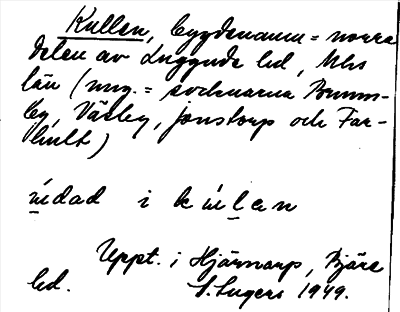 Kullen, bygdenamn = norra
delen av Luggude hd, Mhs
län (ung. = socknarna Brunn-
by, Väsby, Jonstorp och Far-
hult)
údad i kúlen
Uppt. i Hjärnarp, Bjäre
hd. S. Ingers 1949.